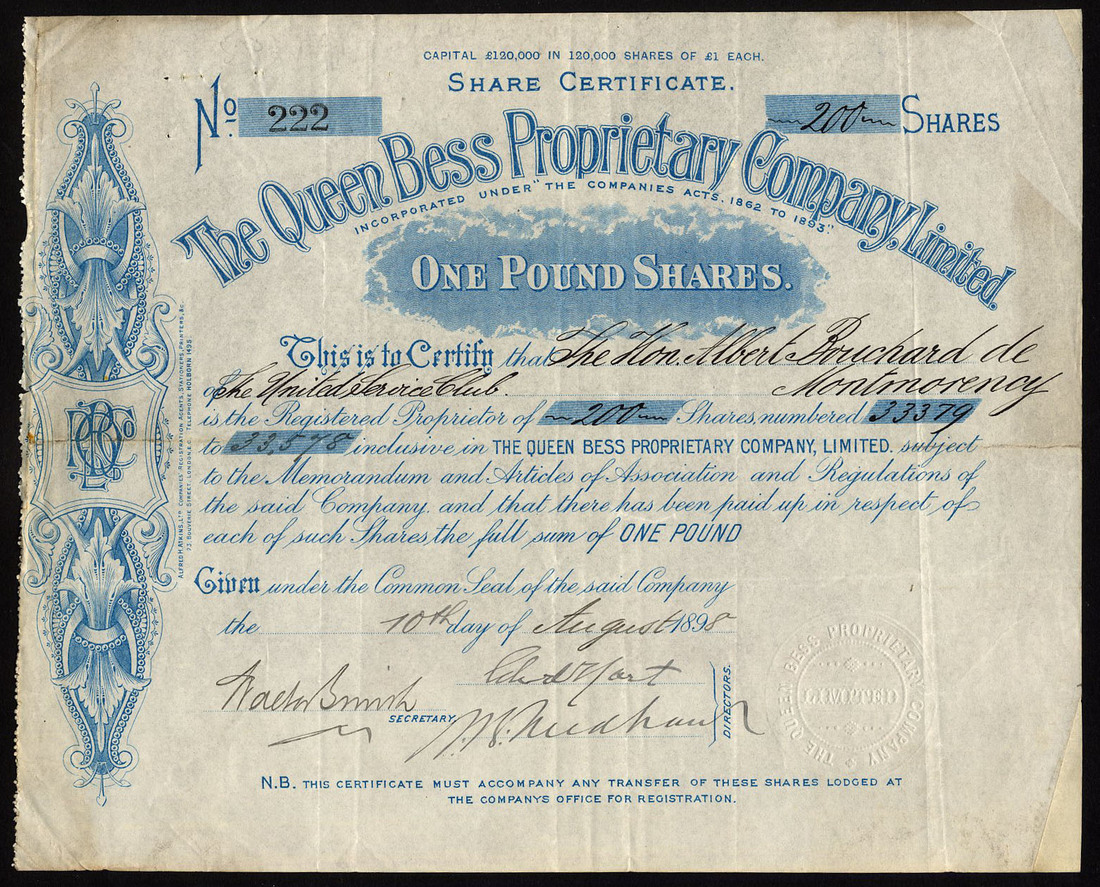 CAPITAL £120,000 IN 120,000 SHARES OF £1 EACH.
SHARE CERTIFICATE.
No. 222
200 SHARES
The Queen Bess Proprietary Company, Limited.
INCORPORATED UNDER "THE COMPANIES ACTS. 1862 TO 1893".
ONE POUND SHARES.
This is to Certify that The Hon. Albert Bouchard de
of The United Service Club. Montmorency
is the Registered Proprietor of 200 Shares, numbered 33379
to 33,578 inclusive in THE QUEEN BESS PROPRIETARY COMPANY, LIMITED. subject
to the Memorandum and Articles of Association and Regulations of
the said Company, and that there has been paid up in respect of
each of such Shares the full sum of ONE POUND
Given under the Common Seal of the said Company
the 10th day of August 1898
SECRETARY
DIRECTORS.
N.B. THIS CERTIFICATE MUST ACCOMPANY ANY TRANSFER OF THESE SHARES LODGED AT
THE COMPANYS OFFICE FOR REGISTRATION.
ALFRED H. ATKINS, LTD COMPANIES REGISTRATION AGENTS, STATIONERS, PRINTERS, &c.
73. BOUVERIE STREET, LONDON. E.C. TELEPHONE HOLBORN 1498
THE QUEEN BESS PROPRIETARY COMPANY
LIMITED